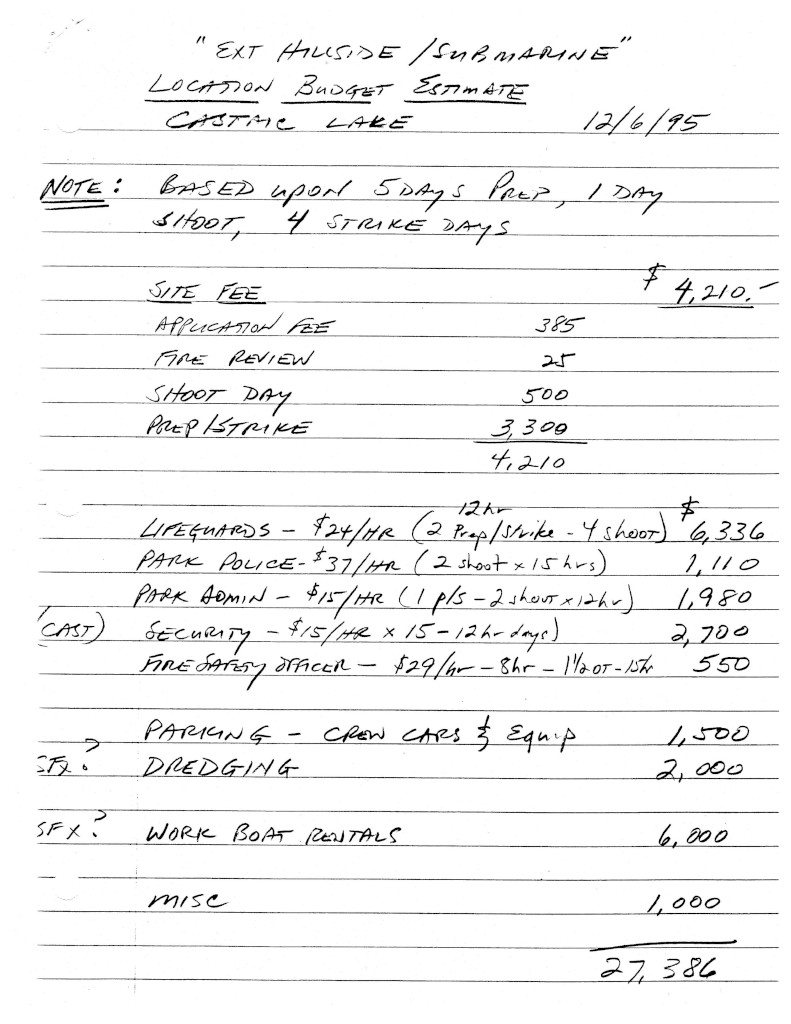 "EXT HILLSIDE / SUBMARINE"
LOCATION BUDGET ESTIMATE
CASTAIC LAKE 12/6/95
NOTE: BASED UPON 5 DAYS PREP, 1 DAY
SHOOT, 4 STRIKE DAYS
SITE FEE $ 4,210.-
APPLICATION FEE 385
FIRE REVIEW 25
SHOOT DAY 500
PREP/STRIKE 3,300
4,210
12hr
LIFEGUARDS - $24/HR (2 Prep/Strike - 4 SHOOT) $ 6,336
PARK POLICE - $37/HR (2 shoot x 15 hrs) 1,110
PARK ADMIN - $15/HR (1 p/s - 2 shoot x 12hr) 1,980
(CAST) SECURITY - $15/HR x 15 - 12hr days) 2,700
FIRE SAFETY OFFICER - $29/hr - 8hr - 1 1/2 OT - 15hr 550
PARKING - CREW CARS & Equip 1,500
SFX? DREDGING 2,000
SFX? WORK BOAT RENTALS 6,000
MISC 1,000
27,386